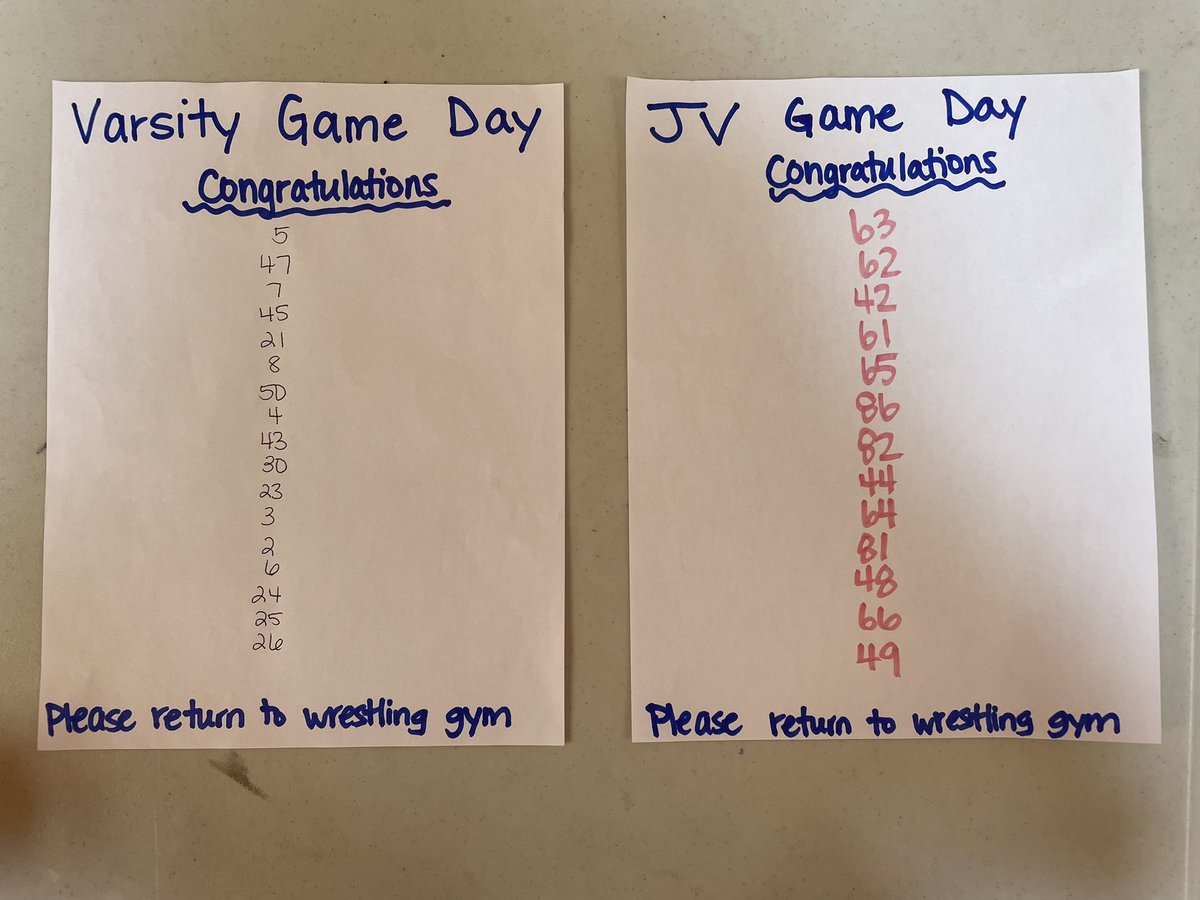 Varsity Game Day
Congratulations
5
47
7
45
21
8
50
4
43
30
23
3
2
6
24
25
26
Please return to wrestling gym
JV Game Day
Congratulations
63
62
42
61
65
86
82
44
64
81
48
66
49
Please return to wrestling gym